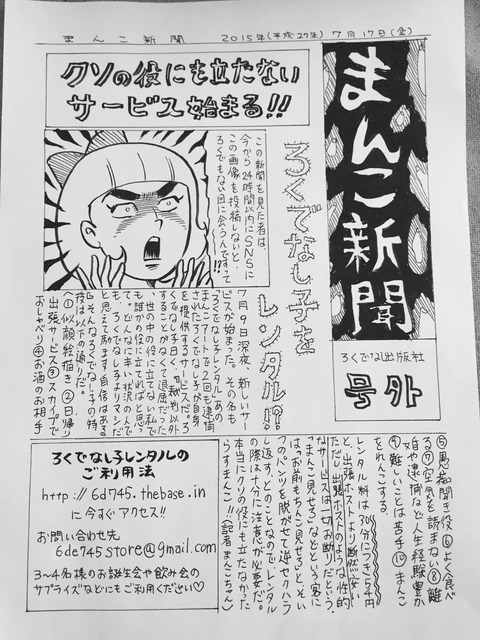 まんこ新聞　2015年(平成27年)　7月17日(金)
まんこ新聞
ろくでなし出版社
号外
クソの役にも立たない
サービス始まる!!
ろくでなし子を
レンタル!?
この新聞を見た者は、
今から24時間以内にSNSに
この画像を投稿しないと、
ろくでもない目に会うんですって
7月9日深夜、新しいサー
ビスが始まった。その名も
「ろくでなし子レンタル」。あの
まんこアートで2回も逮捕
されたろくでなし子が自身
を提供するサービスだ。ろ
くでなし子曰く、「裁判以外
することがなくて退屈だった
世の中の役に立てない私で
も誰かの役に立てればと思っ
て。どんなに辛い状況の人で
も、ろくでなし子よりマシだ
と思えて励ます自信はある
」。そんなろくでなし子の特
技は以下の通りだ。
①似顔絵描き②日帰り
出張サービス③スカイプで
おしゃべり④お酒のお相手
⑤愚痴聞き役⑥よく食べ
る⑦空気を読まない⑧離
婚や逮捕など人生経験豊か
⑨難しいことは苦手⑩まんこ
をれんこする。
レンタル料は30分につき54円
と、出張ホストより断然安い
ただし出張ホストのような性的
なサービスは一切お断りだという。
「まんこ見せろ」などという客に
は「お前もちんこ見せろ」と、そい
つのパンツを脱がせて逆セクハラ
し返す、とのことなのでレンタル
の際は十分に注意が必要だ。
本当にクソの役にも立たなかった
らすまんこ!!(記者まんこちゃん)
ろくでなし子レンタルの
ご利用法
http://6d745.thebase.in
に今すぐアクセス!!
お問い合わせ先
6de745store@gmail.com
3～4名様のお誕生会や飲み会の
サプライズなどにもご利用ください♡